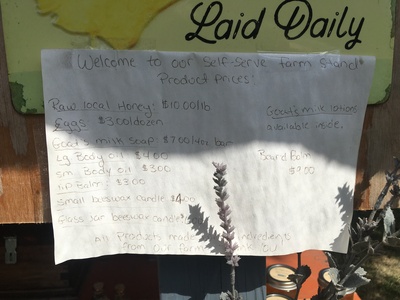 Laid Daily
Welcome to our Self-serve farm stand!
Product Prices:
Raw local Honey: $10.00/lb
Eggs: $3.00/dozen
Goat's milk soap: $7.00/4oz bar
Lg Body oil $4.00
sm. Body oil $3.00
Lip Balm: $3.00
small beeswax candle $4.00
Glass jar beeswax candle
Goat's milk lotions
available inside.
Beard Balm
$9.00
all Products made ingredients
from our farm